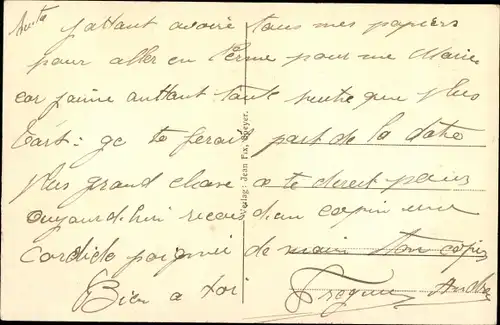 Suite j'attant avoire tous mes papiers
pour aller en Perme pour me Marie
car j'aime auttant tante suite que plus
tart: ge te ferais part de la date
plus grand chose a te dire pour
aujourd'hui recois d'un copin une
Cordiale poignée de main ton copin
Bien a toi André
Verlag: Jean Fix, Speyer.